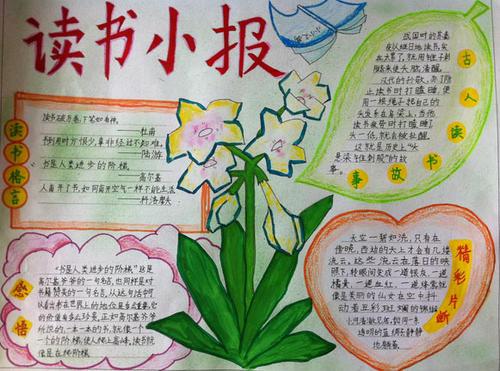 读书小报
读书格言
读书破万卷,下笔如有神。
——杜甫
书到用时方恨少,事非经过不知难。
——陆游
书是人类进步的阶梯。
——高尔基
人离开了书,如同离开空气一样不能生活
——科洛廖夫
古人读书故事
战国时的苏秦
夜以继日地读书,实
在太累了,就用锥子刺
腿来使头脑清醒。
汉代的孙敬,为了防
止读书时打瞌睡,便
用一根绳子把自己的
头发系在房梁上,当他
读书疲劳时打瞌睡了
头一低,就会被扯醒
这就是历史上“头
悬梁与锥刺股”的故
事。
感悟
“书是人类进步的阶梯”这是
高尔基爷爷的一句名言,也同样是对
书籍赞美的一句名言,从这句话中可
以看出书在世界上的地位是有多重要,它
的价值有多么珍贵,正如高尔基爷爷
所说的,一本一本的书,就像一个
一个的阶梯,使人梯上高峰,读书就
像是在梯阶梯
精彩片断
天空一碧如洗,只有在
傍晚,西边的天上才会有几缕
流云,这些流云在落日的映
照下,转眼间变成一道银灰、一道
橘黄、一道血红、一道绛紫,就
像是美丽的仙女在空中抖
动着五彩斑斓的锦缎
小河清澈见底,如同一条
透明的蓝绸子静静
地躺着